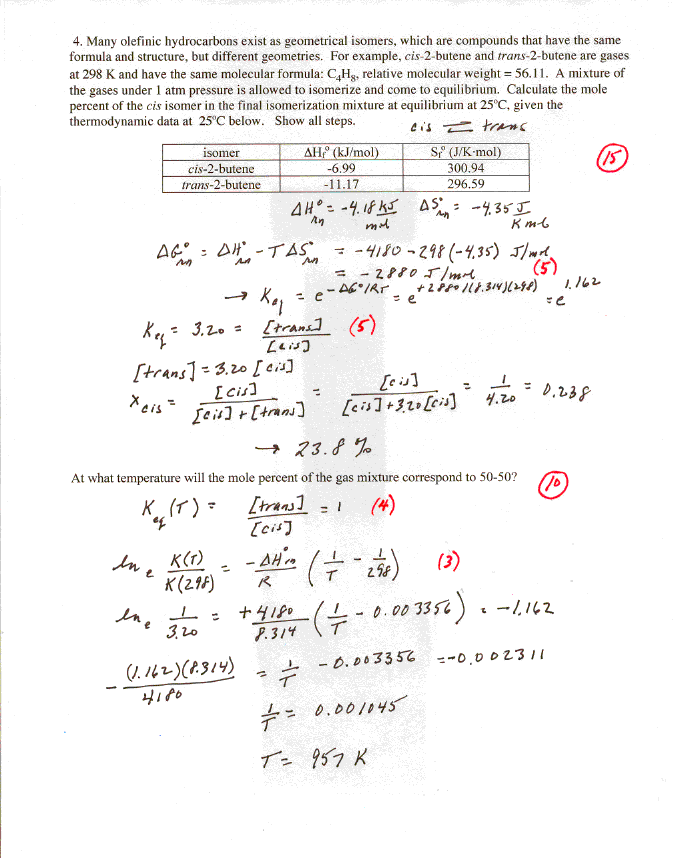 4. Many olefinic hydrocarbons exist as geometrical isomers, which are compounds that have the same
formula and structure, but different geometries. For example, cis-2-butene and trans-2-butene are gases
at 298 K and have the same molecular formula: C₄H₈, relative molecular weight = 56.11. A mixture of
the gases under 1 atm pressure is allowed to isomerize and come to equilibrium. Calculate the mole
percent of the cis isomer in the final isomerization mixture at equilibrium at 25°C, given the
thermodynamic data at 25°C below. Show all steps.
cis ⇌ trans
(15)
isomer ΔHf° (kJ/mol) Sf° (J/K-mol)
cis-2-butene -6.99 300.94
trans-2-butene -11.17 296.59
ΔH°rxn = -4.18 kJ/mol ΔS°rxn = -4.35 J/K mol
ΔG°rxn = ΔH°rxn - TΔS°rxn = -4180 - 298(-4.35) J/mol
= -2880 J/mol (5)
→ Keq = e^-ΔG°/RT = e^+2880/(8.314)(298) = e^1.162
Keq = 3.20 = [trans]/[cis] (5)
[trans] = 3.20 [cis]
Xcis = [cis]/[cis]+[trans] = [cis]/[cis]+3.20[cis] = 1/4.20 = 0.238
→ 23.8 %
At what temperature will the mole percent of the gas mixture correspond to 50-50?
(10)
Keq(T) = [trans]/[cis] = 1 (4)
lne K(T)/K(298) = -ΔH°rxn/R (1/T - 1/298) (3)
lne 1/3.20 = +4180/8.314 (1/T - 0.003356) = -1.162
-(1.162)(8.314)/4180 = 1/T - 0.003356 = -0.002311
1/T = 0.001045
T = 957 K